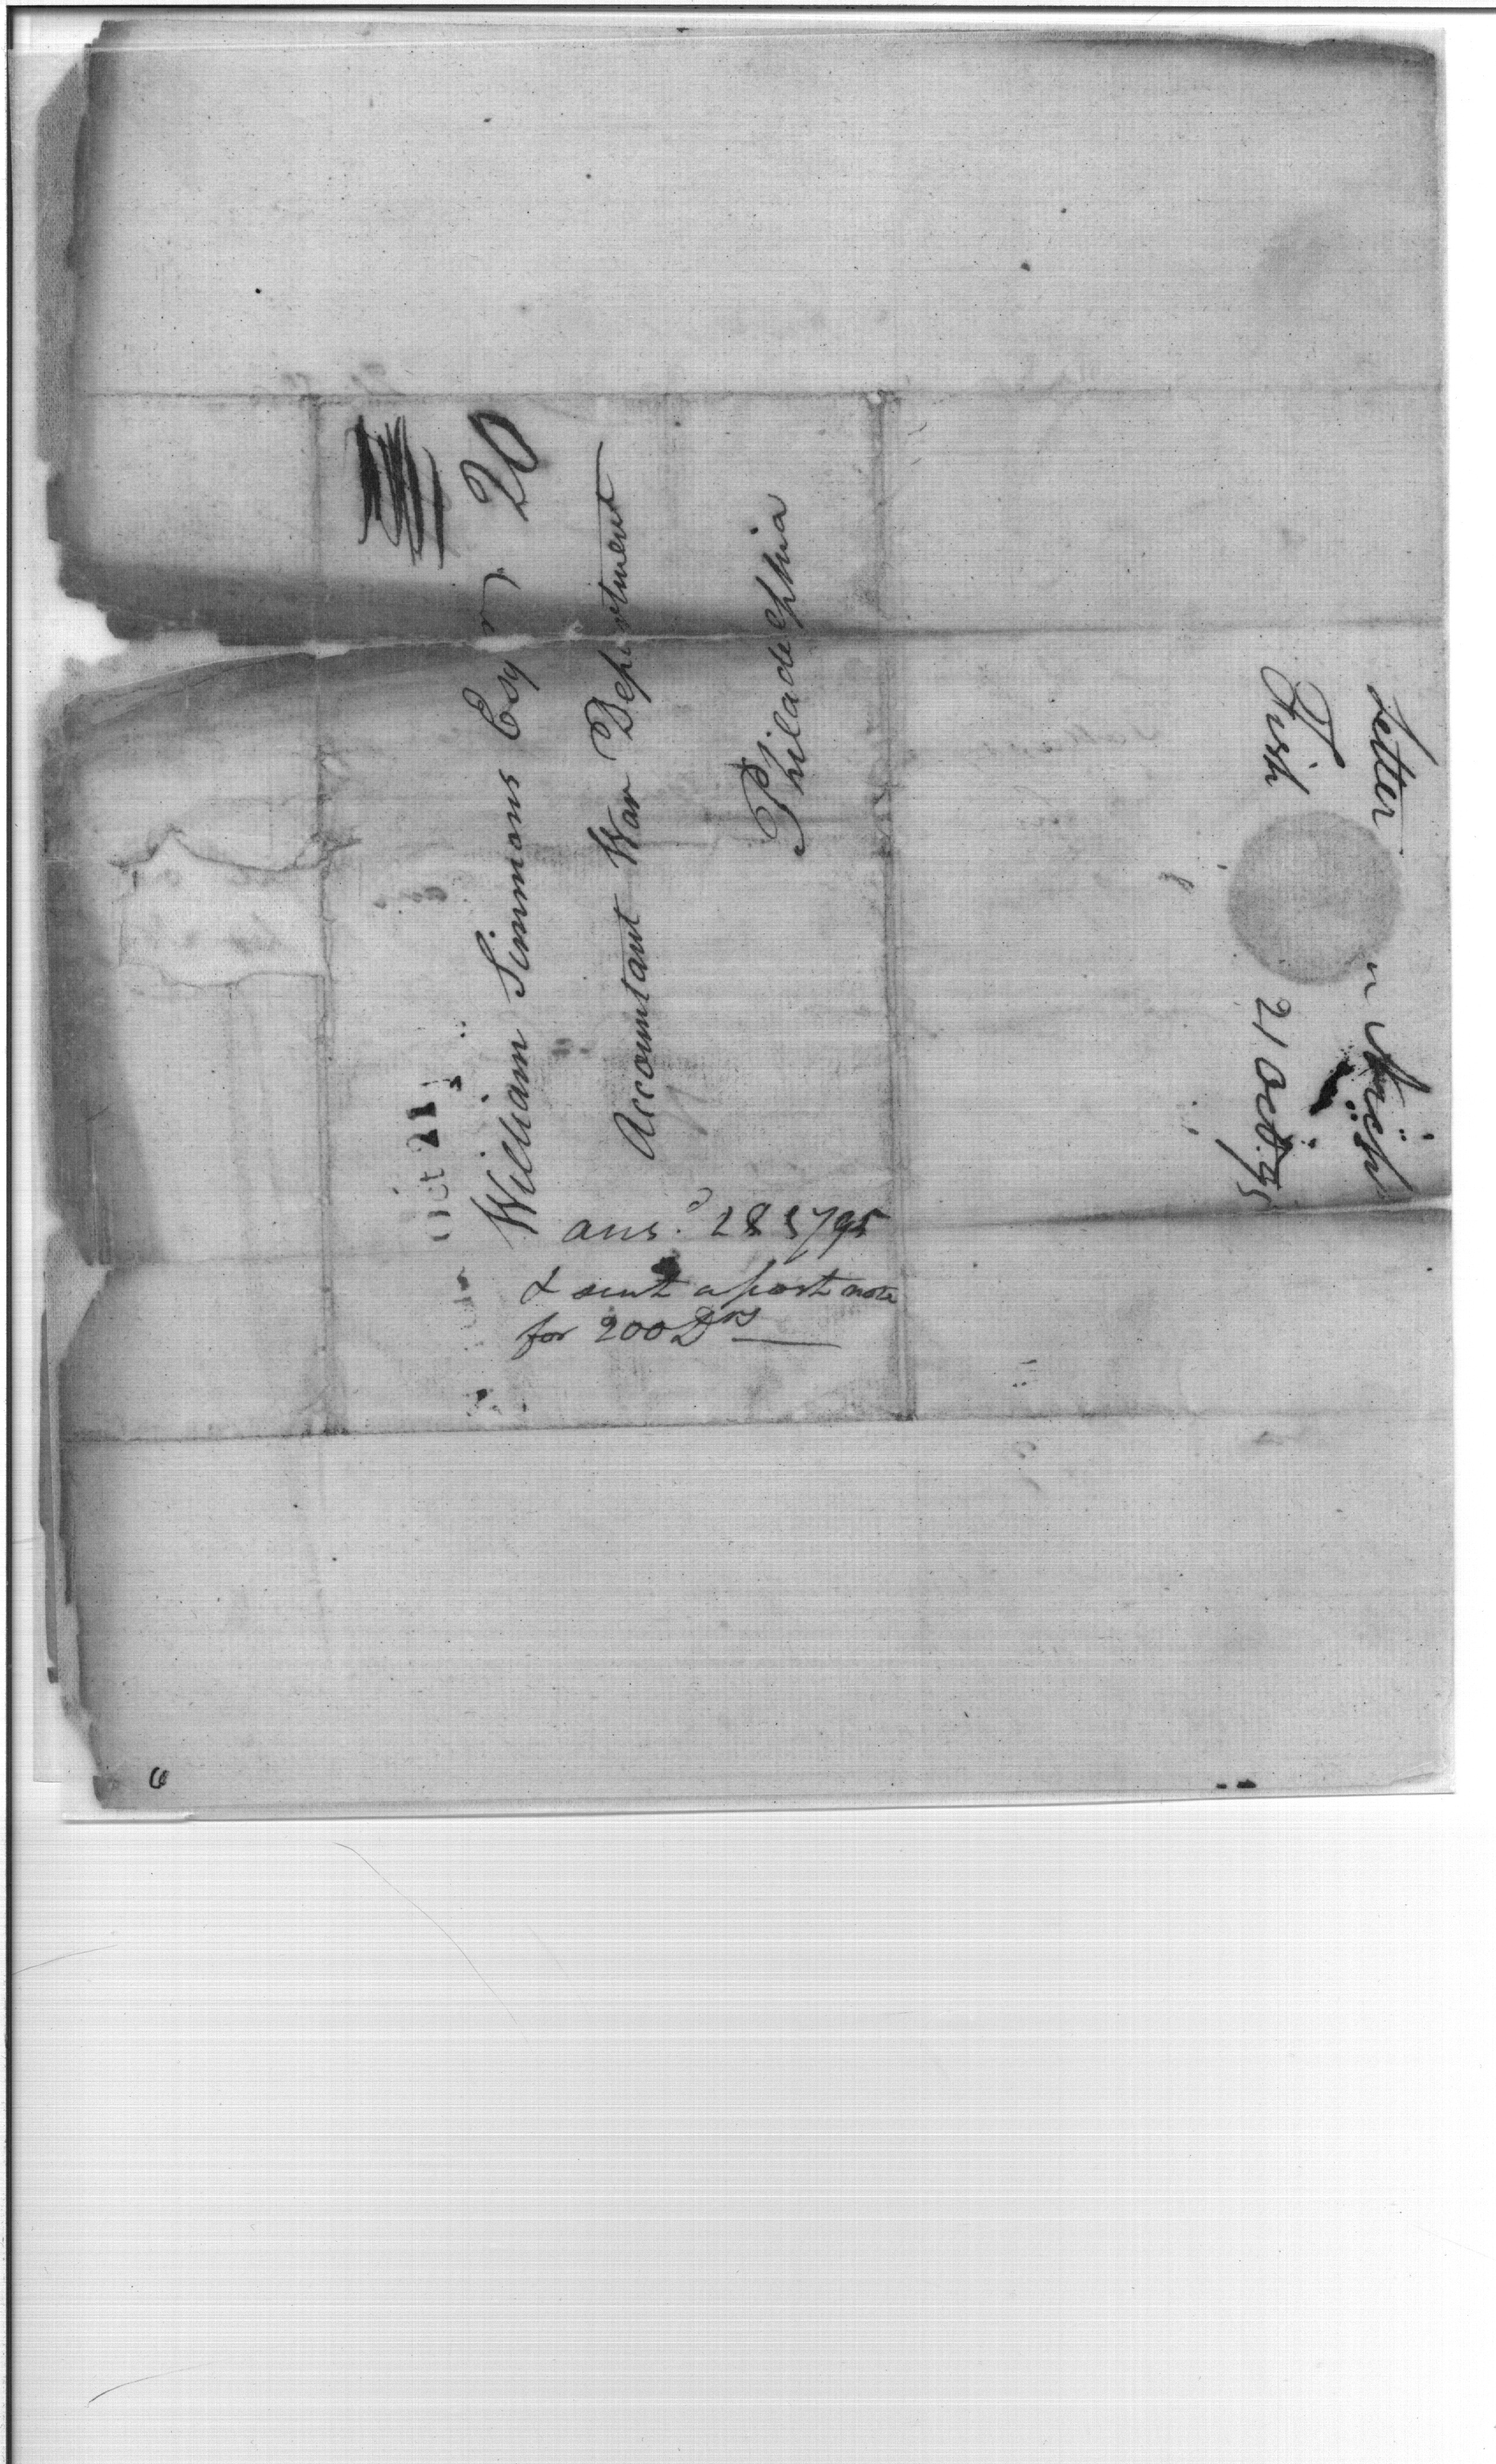 20
William Simmons Esqr
Accountant War Department
Philadelphia
Oct 21
ansd. 28 1795
& sent a post note
for 200 Drs
Letter
Fish
21 Oct. 95